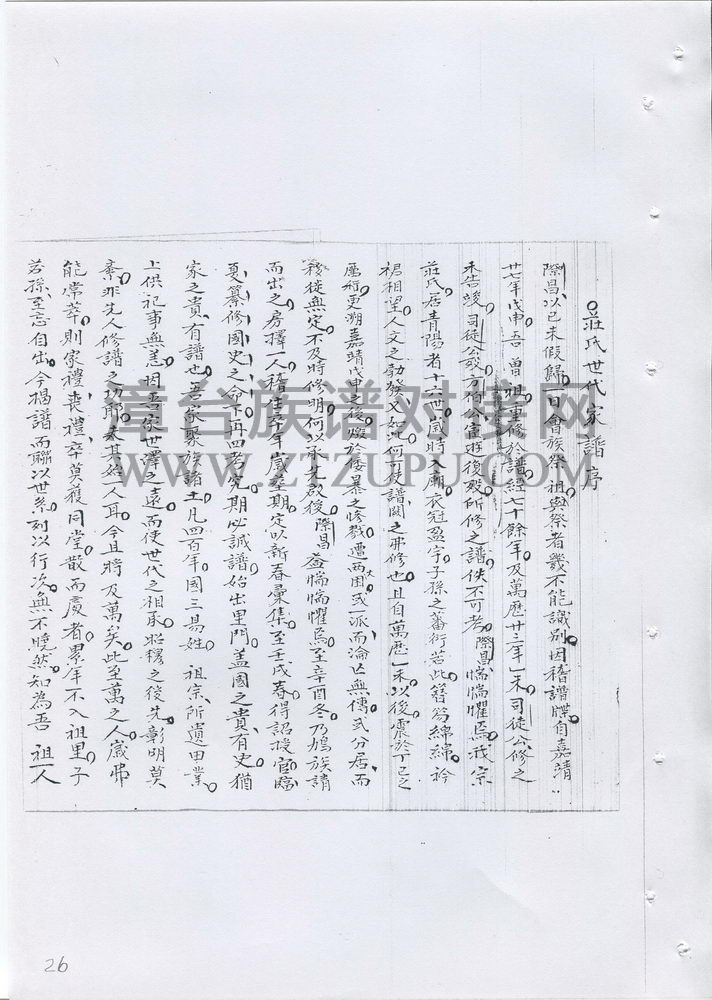 莊氏世代家譜序
際昌以己未假歸一日會族祭祖與祭者幾不能識別因稽譜牒自嘉靖
廿七年戊申吾曾祖重修於譜經七十餘年及萬曆廿三年乙未司徒公修之
未告竣司徒公歿方伯公宦遊後歿所修之譜佚不可考際昌惴惴懼焉我宗
莊氏居青陽者十六世歲時入廟衣冠盈宇子孫之蕃衍若此簪笏綿綿衿
裙相望人文之勃發又如此何可及譜闕之弗修也且自萬曆乙未以後震於丁巳之
厲府更溯嘉靖戊申之後燬於倭暴之慘戮遭兩困或一派而淪亡無傳或分居而
移徙無定不及時修明何以承先啟後際昌益惴惴懼焉至辛酉冬乃鳩族請
而出之房擇一人稽生卒年歲塋期定以新春彙集至壬戌春得詔授官臨
夏纂修國史之命下再四考究期必誠譜始出里門蓋國之貴有史猶
家之貴有譜也吾家聚族諸土凡四百年國三易姓祖宗所遺田業
上供祀事無恙因吾家世澤之遠而使世代之相承昭穆之後先彰明莫
紊非先人修譜之功耶夫其始一人耳今且將及萬矣此至萬之人歲弗
能常萃則家禮喪禮卒莫獲同堂散而處者累年不入祖里子
若孫至忘自出今揭譜而聯以世系列以行次無不曉然知為吾祖一人
26
青台族谱对接网
WWW.ZTZUPU.COM